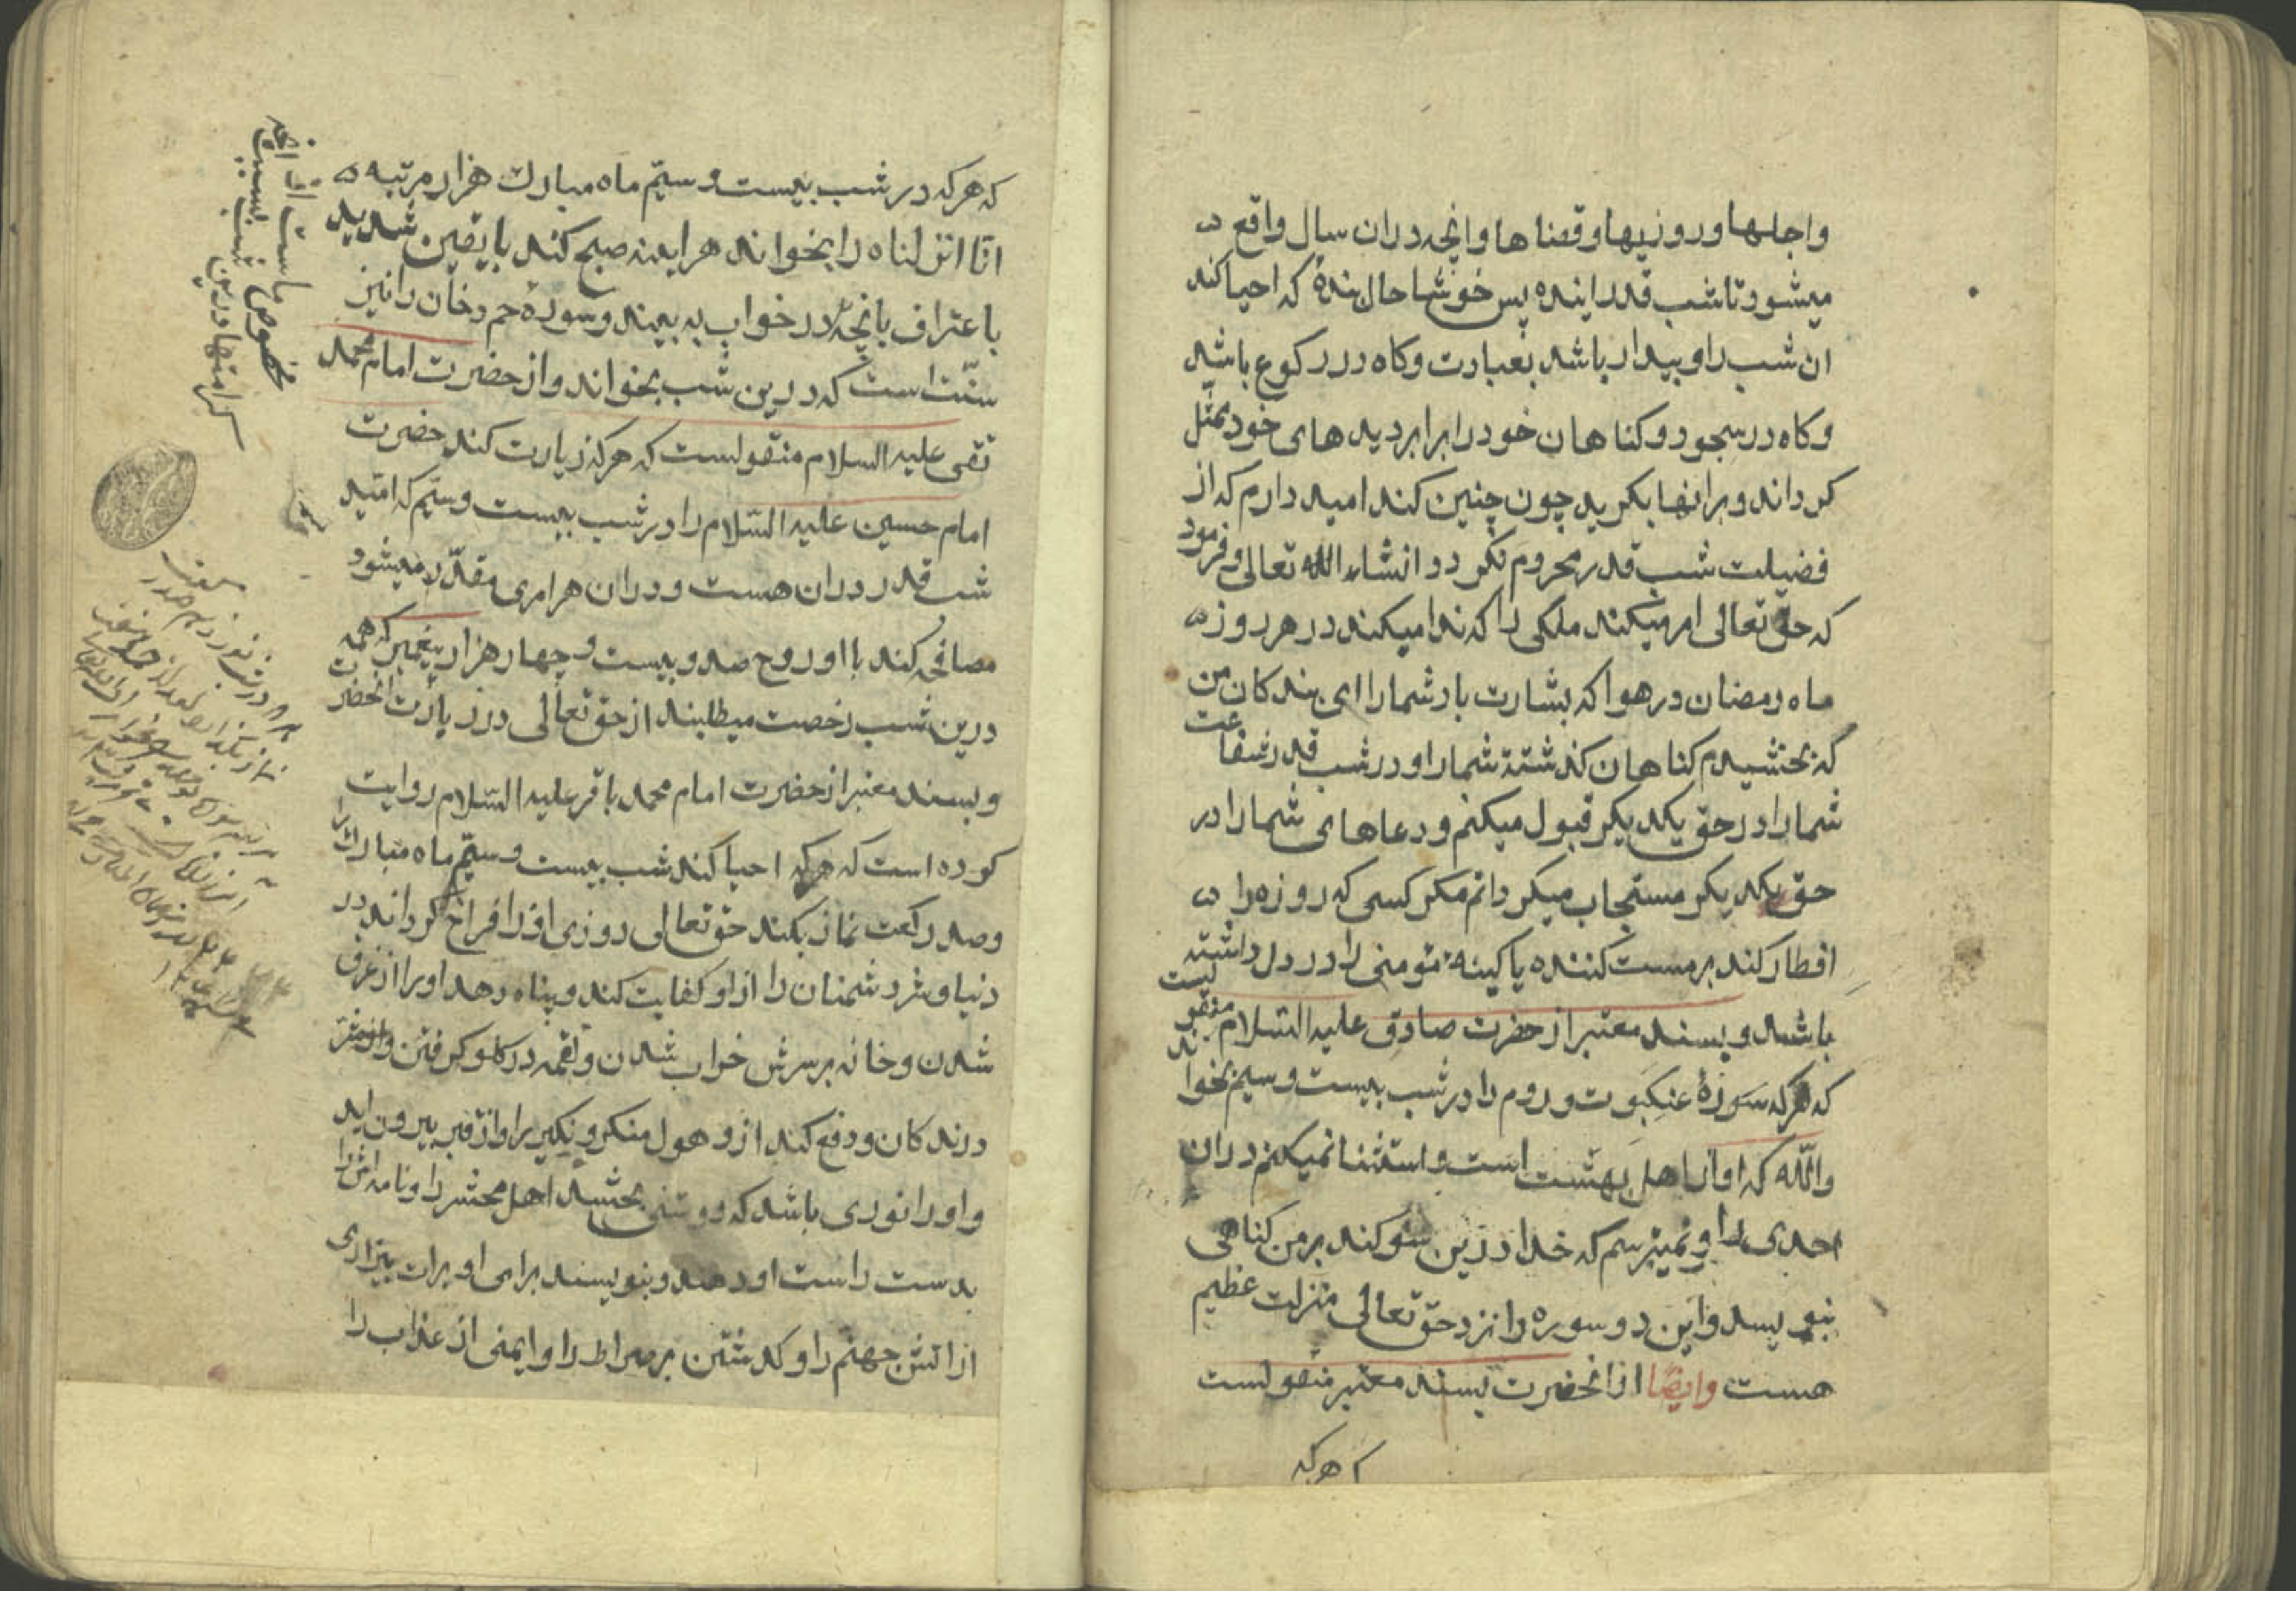 واجلها و روزیها و قضاها وانچه دران سال واقع
میشود تا شب قدر اینده پس خوشا حال بندهٔ که احیا کند
ان شب را و بیدار باشد بعبادت وکاه در رکوع باشد
وکاه در سجود و کناهان خود را برابر دیدهای خود ممثل
کرداند و برانها بکرید چون چنین کند امید دارم که از
فضیلت شب قدر محروم نکردد انشاء الله تعالی و فرمود
که حق تعالی امر میکند ملکی را که ندا میکند در هر روز
ماه رمضان در هوا که بشارت باد شمارا ای بندکان من
که بخشیدم کناهان کذشتهٔ شمارا و در شب قدر شفاعت
شمارا در حق یکدیکر قبول میکنم و دعاهای شمارا در
حق یکدیکر مستجاب میکردانم مکر کسی که روزه را
افطار کند بر مست کننده یا کینهٔ مؤمنی را در دل داشته
باشد و بسند معتبر از حضرت صادق علیه السّلام منقولیست
که هرکه سورهٔ عنکبوت و روم را در شب بیست و سیم بخواند
والله که او از اهل بهشت است و استثنا نمیکنم دران
احدی را و نمیترسم که خدا درین سوکند بر من کناهی
بنویسد و این دو سوره را نزد حق تعالی منزلت عظیم
هست وایضا از انحضرت بسند معتبر منقولست
که هرکه
که هرکه در شب بیست و سیّم ماه مبارک هزار مرتبه
انا انزلناه را بخواند هراینه صبح کند با یقین شدید
باعتراف بانچه در خواب به بیند و سورهٔ حم دخان را نیز
سنّت است که درین شب بخواند و از حضرت امام محمد
تقی علیه السلام منقولست که هرکه زیارت کند حضرت
امام حسین علیه السّلام را در شب بیست و سیّم که امّید
شب قدر دران هست و دران هر امری مقدّر میشود
مصافحه کند با او روح صد و بیست و چهار هزار پیغمبر که همه
درین شب رخصت میطلبند از حق تعالی در زیارت انحضرت
و بسند معتبر از حضرت امام محمد باقر علیه السّلام روایت
کرده است که هرکه احیا کند شب بیست و سیّم ماه مبارک را
و صد رکعت نماز بکند حق تعالی روزی او را فراخ کرداند در
دنیا و شر دشمنان را از او کفایت کند و پناه دهد او را از غرق
شدن و خانه بر سرش خراب شدن و لقمه در کلو کرفتن و از شر
درندکان و دفع کند ازو هول منکر و نکیر را و از قبر بیرون اید
و او را نوری باشد که روشنی بخشد اهل محشر را و نامه اش را
بدست راست او دهند و بنویسند برای او برات بیزاری
از اتش جهنم را و کذشتن بر صراط را و ایمنی از عذاب را